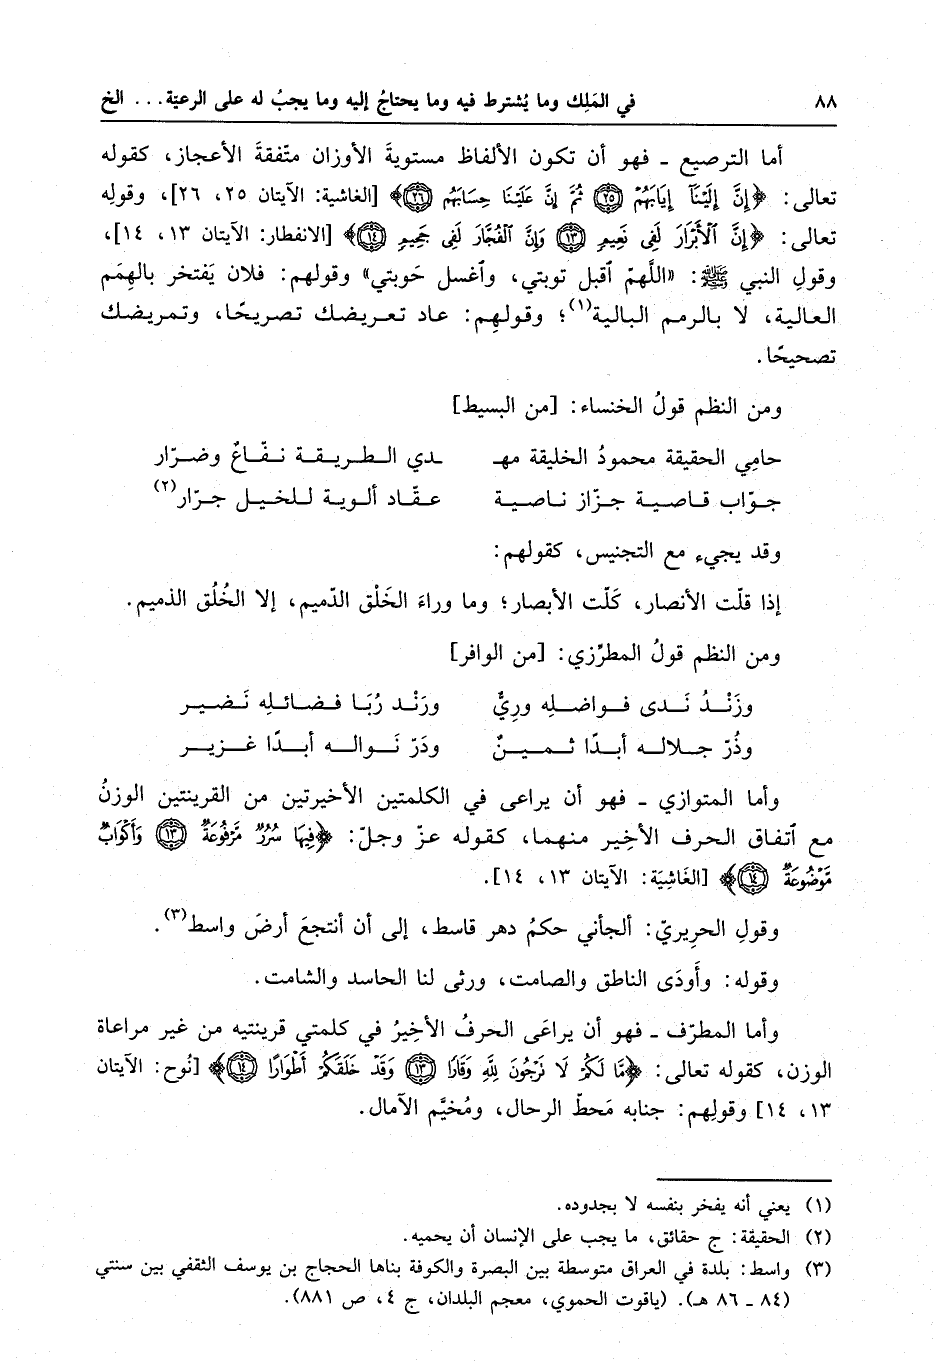 ٨٨ في المَلِك وما يُشترط فيه وما يحتاجُ إليه وما يجبُ له على الرعيّة... الخ
أما الترصيع ـ فهو أن تكون الألفاظ مستويةَ الأوزان متّفقةَ الأعجاز، كقوله
تعالى: ﴿إِنَّ إِلَيْنَآ إِيَابَهُمْ ﴿٢٥﴾ ثُمَّ إِنَّ عَلَيْنَا حِسَابَهُم ﴿٢٦﴾﴾ [الغاشية: الآيتان ٢٥، ٢٦]، وقولِه
تعالى: ﴿إِنَّ ٱلْأَبْرَارَ لَفِى نَعِيمٍ ﴿١٣﴾ وَإِنَّ ٱلْفُجَّارَ لَفِى جَحِيمٍ ﴿١٤﴾﴾ [الانفطار: الآيتان ١٣، ١٤]،
وقولِ النبي ﷺ: «اللَّهمّ ٱقبل توبتي، وٱغسل حَوبتي» وقولهم: فلان يَفتخر بالهِمَم
العالية، لا بالرمم البالية(١)؛ وقولهِم: عاد تعريضك تصريحًا، وتمريضك
تصحيحًا.
ومن النظم قولُ الخنساء: [من البسيط]
حامِي الحقيقة محمودُ الخليقة مهـ ـدي الـطـريـقـة نـفّـاعٌ وضـرّار
جـوّاب قـاصـيـة جـزّاز نـاصـيـة عـقّـاد ألـويـة لـلـخـيـل جـرّار(٢)
وقد يجيء مع التجنيس، كقولهم:
إذا قلّت الأنصار، كَلّت الأبصار؛ وما وراءَ الخَلْق الدّميم، إلا الخُلُق الذميم.
ومن النظم قولُ المطرِّزي: [من الوافر]
وزَنْـدُ نَـدى فـواضـلِه ورِيٌّ ورَنْـد رُبَـا فـضـائـلِه نَـضـيـر
وذُرّ جـلالـه أبـدًا ثـمـيـنٌ ودَرّ نَـوالـه أبـدًا غـزيـر
وأما المتوازي ـ فهو أن يراعى في الكلمتين الأخيرتين من القرينتين الوزنُ
مع ٱتفاق الحرف الأخِير منهما، كقوله عزّ وجلّ: ﴿فِيهَا سُرُرٌ مَّرْفُوعَةٌ ﴿١٣﴾ وَأَكْوَابٌ
مَّوْضُوعَةٌ ﴿١٤﴾﴾ [الغَاشيَة: الآيتان ١٣، ١٤].
وقولِ الحرِيريّ: ألجأني حكمُ دهر قاسط، إلى أن أنتجعَ أرضَ واسط(٣).
وقوله: وأودَى الناطق والصامت، ورثى لنا الحاسد والشامت.
وأما المطرّف ـ فهو أن يراعَى الحرفُ الأخِيرُ في كلمتي قرينتيه من غير مراعاة
الوزن، كقوله تعالى: ﴿مَّا لَكُمْ لَا تَرْجُونَ لِلَّهِ وَقَارًا ﴿١٣﴾ وَقَدْ خَلَقَكُمْ أَطْوَارًا ﴿١٤﴾﴾ [نُوح: الآيتان
١٣، ١٤] وقولهِم: جنابه مَحطّ الرحال، ومُخيَّم الآمال.
(١) يعني أنه يفخر بنفسه لا بجدوده.
(٢) الحقيقة: ج حقائق، ما يجب على الإنسان أن يحميه.
(٣) واسط: بلدة في العراق متوسطة بين البصرة والكوفة بناها الحجاج بن يوسف الثقفي بين سنتي
(٨٤ ـ ٨٦ هـ). (ياقوت الحموي، معجم البلدان، ج ٤، ص ٨٨١).